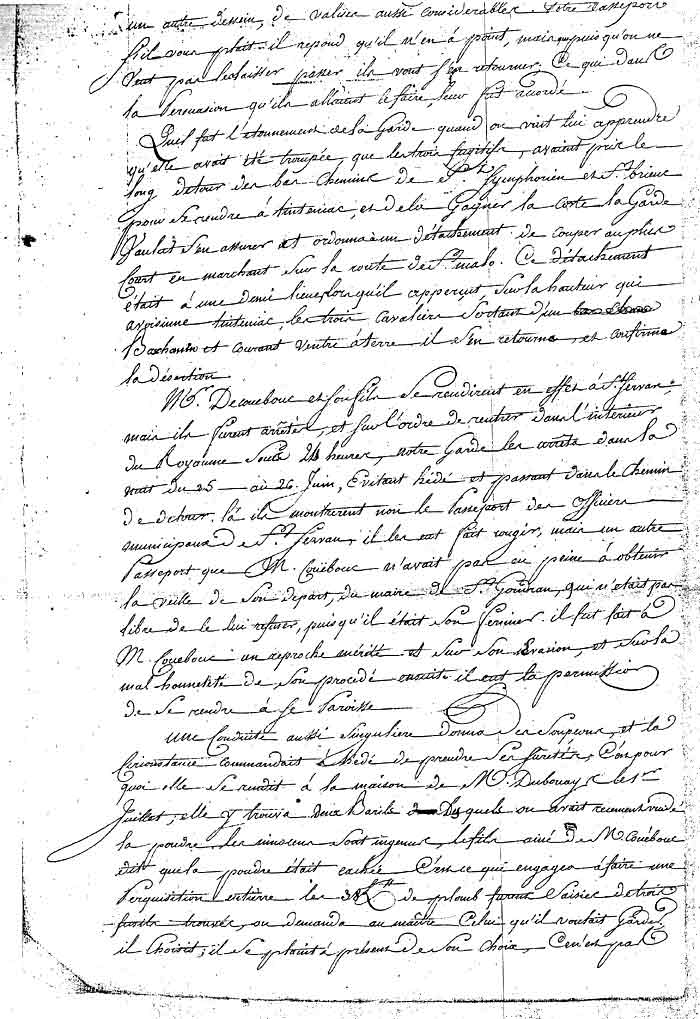 un autre dessein, de valises aussi considerables votre Passeport
s'il vous plait. il repond qu'il n'en à point, mais puisqu'on ne
veut pas les laisser passer ils vont s'en retourner. Ce qui dans
la Persuasion qu'ils allaient le faire, leur fut accordé.
Quel fut l'étonnement de la Garde quand on vint lui apprendre
qu'elle avait été trompée, que les trois fugitifs, avaient pris le
long detour des bas chemins de St Symphorien et St brieuc
pour se rendre à tinteniac, et de là Gagner la Coste la Garde
Voulait s'en assurer et ordonna à un détachement de couper au plus
Court en marchant sur la route de St malo. Ce détachement
était à une demi lieue lorsqu'il apperçut sur la hauteur qui
avoisinne tinteniac, les trois cavaliers sortant d'un
Bas chemin et courant ventre à terre il s'en retourna, et confirma
la désertion.
Mr. Decouebouc et son fils se rendirent en effet à St. Servan;
mais ils furent arrêtés, et sur l'ordre de rentrer dans l'intérieur
du Royaume sous 24 heures, notre Garde les arreta dans la
nuit du 25 au 26 Juin, Evitant hédé et passant dans le Chemin
de detour. là ils montrerent non le Passeport des Officiers
municipaux de St. Servan, il les eut fait rougir, mais un autre
Passeport que M. Couëbouc n'avait pas eu peine à obtenir
la veille de son depart, du maire de St. Gondran, qui n'etait pas
libre de le lui refuser, puisqu'il était son fermier. il fut fait à
M. Couebouc un reproche mérité et sur son Evasion, et sur la
mal honneteté de son procédé ensuite il eut la permission
de se rendre à sa Paroisse
une Conduite aussi singulière donna des soupçons, et la
Circonstance commandait à hédé de prendre ses suretés, C'est pour
quoi elle se rendit à la maison de M. Dubouays le 1er
Juillet, elle y trouva deux Barils desquels on avait recemment vuidé
la poudre, les innocens sont ingenus, le fils ainé de M Couëbouc
dit que la poudre était cachée C'est ce qui engagea à faire une
Perquisition entière les 38 ℔ de plomb furent saisies de trois
fusils trouvés, on demanda au maître Celui qu'il voulait Garder,
il choisit; il se plaint à présent de son choix, Ce n'est pas